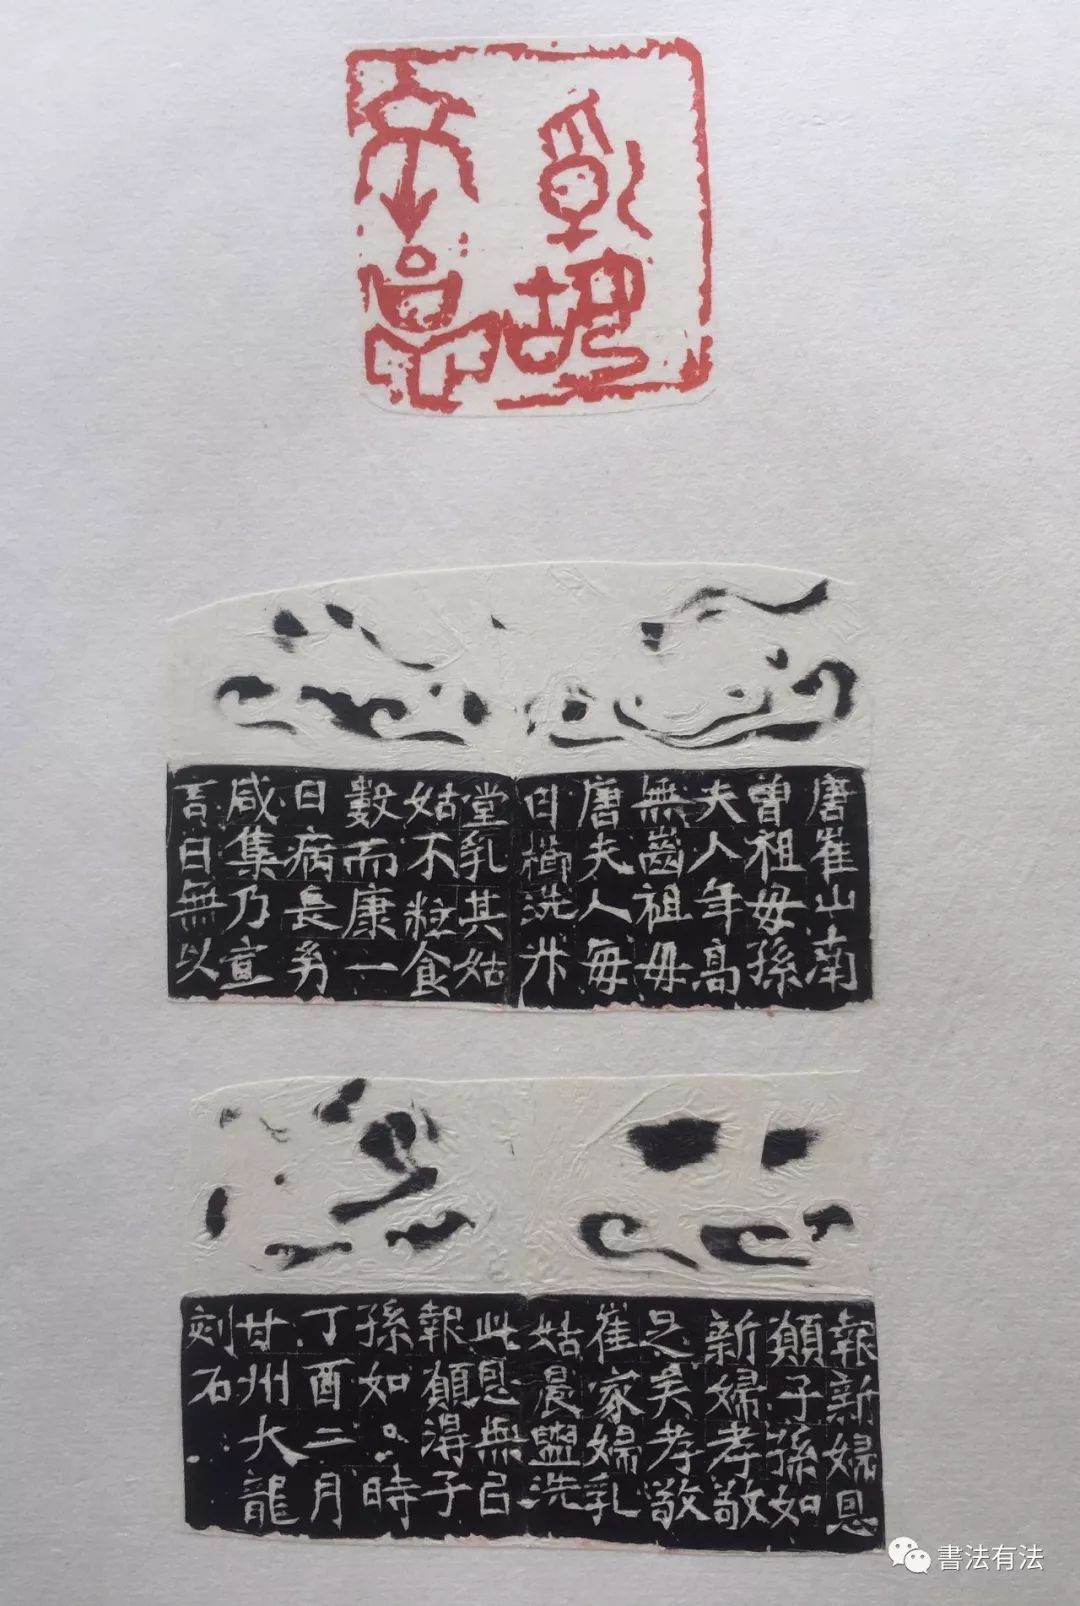 乳姑
不怠
唐崔山南
曽祖毋孫
夫人年高
無齒祖毋
唐夫人每
日櫛洗升
堂乳其姑
姑不粒食
數而康一
日病長幼
咸集乃宣
言曰無以
報新婦恩
願子孫如
新婦孝敬
足矣孝敬
崔家婦乳
姑晨盥洗
此恩無以
報願得子
孫如時
丁酉二月
甘州大龍
刻石
書法有法